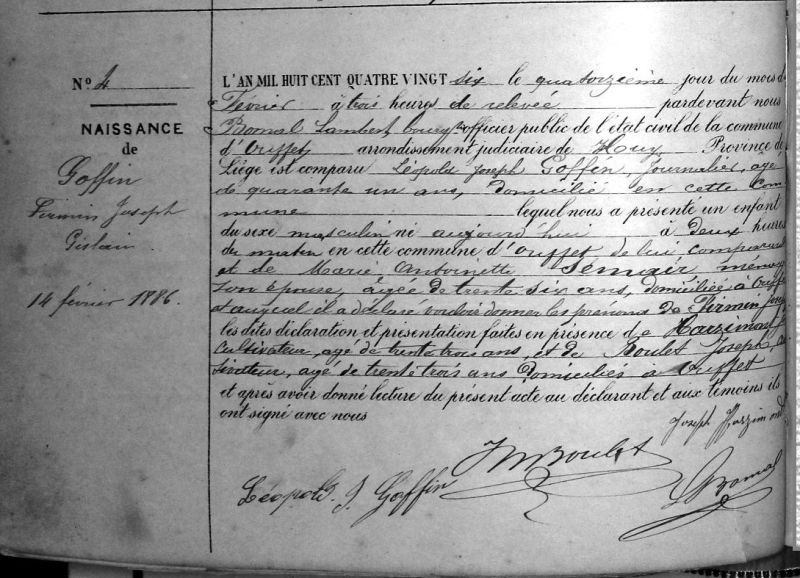 N° 4
NAISSANCE
de
Goffin
Firmin Joseph
Gislain
14 février 1886.
L'AN MIL HUIT CENT QUATRE VINGT six le quatorzième jour du mois d
Février à trois heures de relevée pardevant nous
Bomal Lambert bourg officier public de l'état civil de la commune
d'Ouffet arrondissement judiciaire de Huy Province de
Liége est comparu Léopold Joseph Goffin, Journalier, agé
de quarante un ans, Domicilié en cette Com
mune lequel nous a présenté un enfant
du sexe masculin né aujourd'hui à deux heures
du matin en cette commune d'Ouffet de lui comparant
et de Marie Antoinette ménag
son épouse, agée de trente six ans, domiciliée à Ouffet
et auquel il a déclaré vouloir donner les prénoms de Firmin Jos
les dites déclaration et présentation faites en présence de
Cultivateur, agé de trente trois ans, et de Boulet Joseph,
tivateur, agé de trente trois ans Domiciliés à Ouffet
et après avoir donné lecture du présent acte au déclarant et aux témoins ils
ont signé avec nous
Joseph
Boulet
Léopold J. Goffin
L Bomal